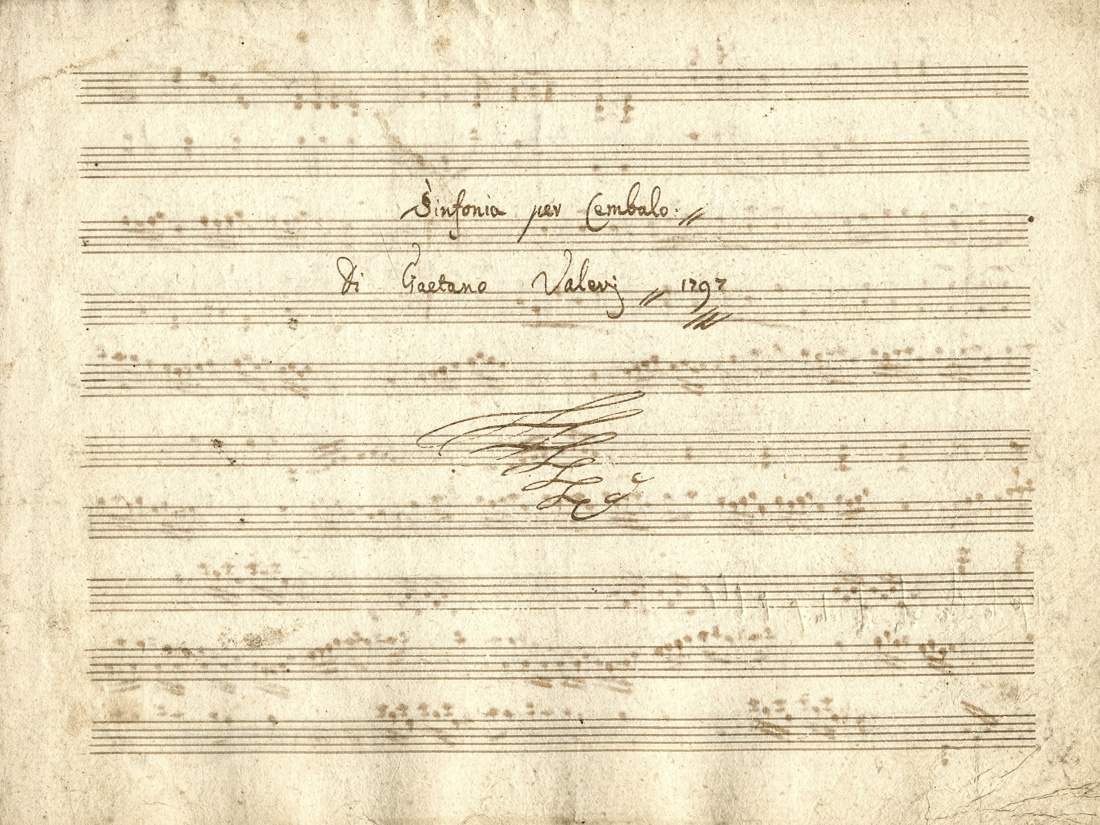 Sinfonia per Cembalo.
di Gaetano Valerj 1797